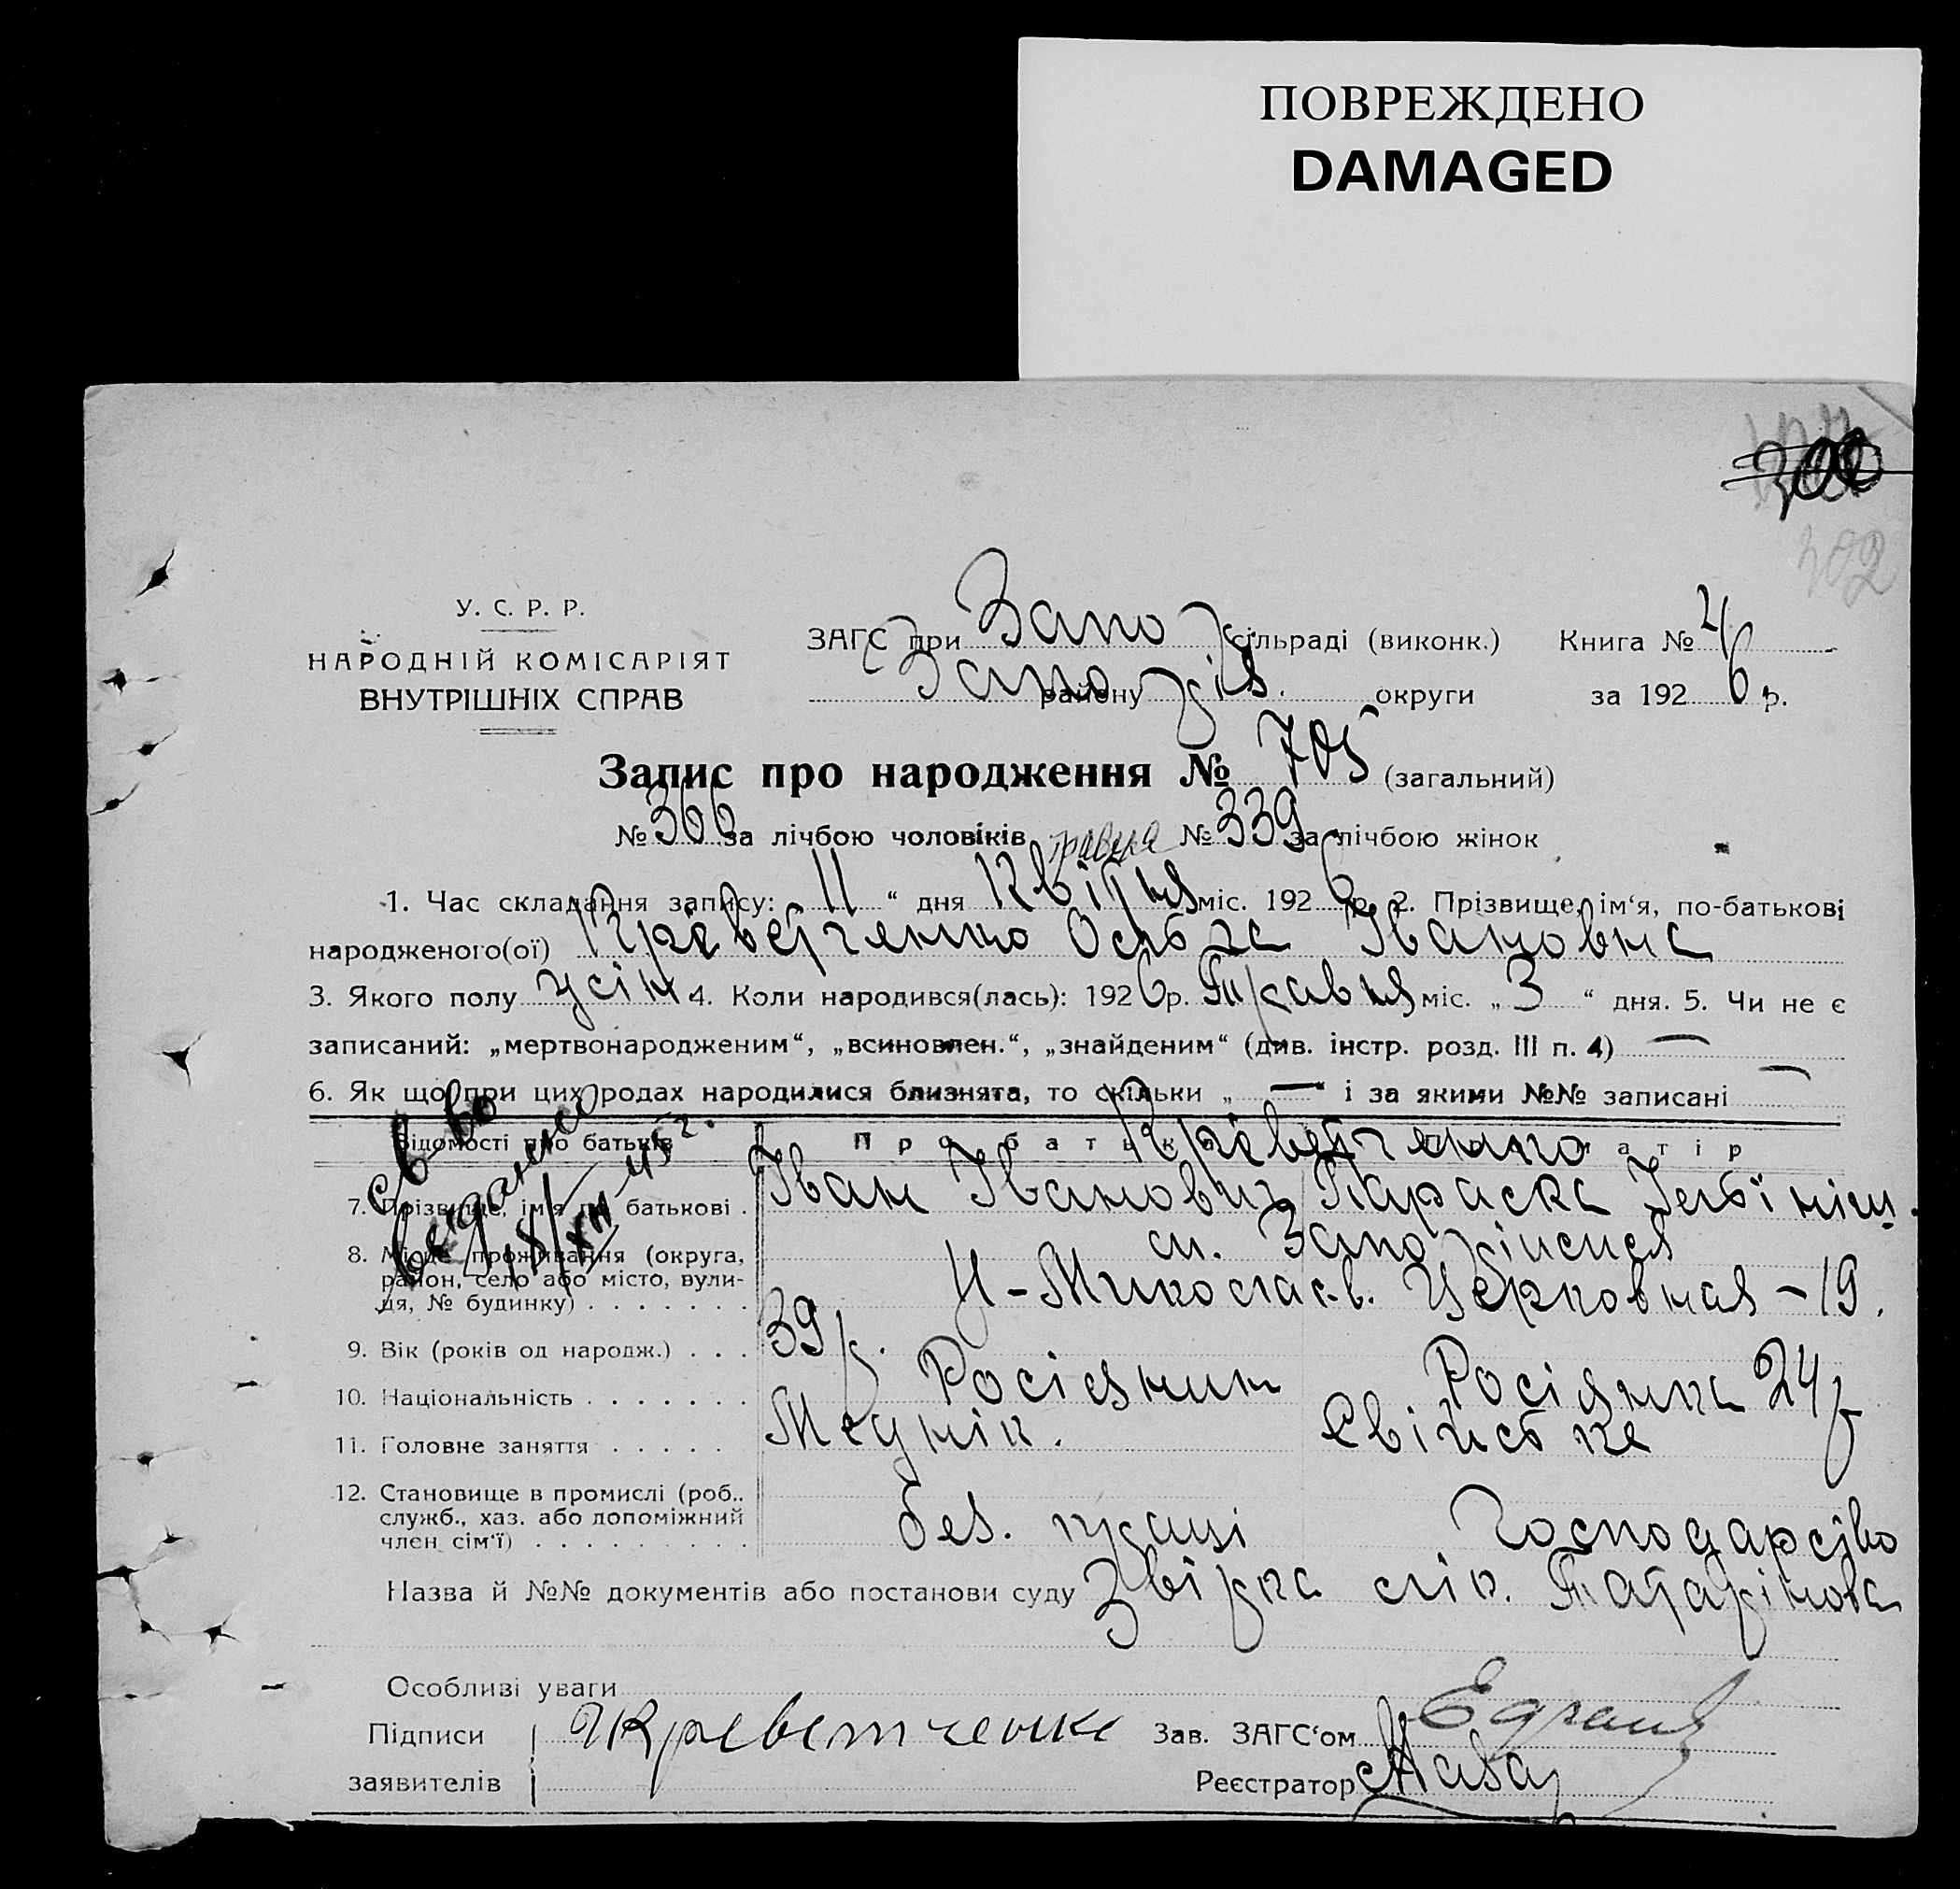 ПОВРЕЖДЕНО
DAMAGED
302
У. С. Р. Р.
НАРОДНІЙ КОМІСАРІЯТ
ВНУТРІШНІХ СПРАВ
ЗАГС при Запо сільраді (виконк.) Книга №
району округи за 192 6 р.
Запис про народження № 705 (загальний)
№ 366 за лічбою чоловіків травня № 339 за лічбою жінок
1. Час складання запису: 11 “ дня Квітня міс. 192 6 р. 2. Прізвище, ім‘я, по-батькові
народженого(ої) Ольга Івановна
3. Якого полу 4. Коли народився(лась): 192 6 р. Травня міс. „ 3 “ дня. 5. Чи не є
записаний: „мертвонародженим“, „всиновлен.“, „знайденим“ (див. інстр. розд. III п. 4) —
6. Як що при цих родах народилися близнята, то скільки „ — “ і за якими №№ записані —
Відомості про батьків Про батька Про матір
7. Прізвище, ім‘я по батькові . Іван Іванович Параска
8. Місце проживання (округа,
район, село або місто, вули-
ця, № будинку) . . . . . . . Н-Миколаєв. Церковная – 19.
9. Вік (років од народж.) . . . 39 р. 24 р
10. Національність . . . . . . . Росіянин Росіянка
11. Головне заняття . . . . . Меднік.
12. Становище в промислі (роб..
служб., хаз. або допоміжний
член сім‘ї) . . . . . . . . . без. праці Господарство
Назва й №№ документів або постанови суду Звірка
Особливі уваги
Підписи Зав. ЗАГС‘ом
заявителів Реєстратор